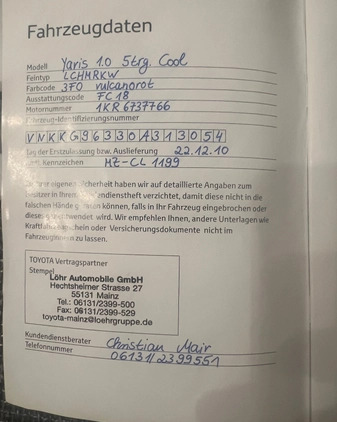 Fahrzeugdaten
Modell Yaris 1.0 5trg. Cool
Feintyp LCHMRKW
Farbcode 3F0 vulcanorot
Ausstattungscode FC18
Motornummer 1KR6737766
Fahrzeug-Identifizierungsnummer
VNKKG96330A313054
Tag der Erstzulassung bzw. Auslieferung 22.12.10
Kennzeichen MZ-CL 1199
eigenen Sicherheit haben wir auf detaillierte Angaben zum
besitzer in Ihrem Kundendienstheft verzichtet, damit diese nicht in die
falschen Hände geraten können, falls in Ihr Fahrzeug eingebrochen oder
dieses entwendet wird. Wir empfehlen Ihnen, andere Unterlagen wie
Kraftfahrzeugschein oder Versicherungsdokumente nicht im
Fahrzeuginnern zu lassen.
TOYOTA Vertragspartner
Stempel
Löhr Automobile GmbH
Hechtsheimer Strasse 27
55131 Mainz
Tel.: 06131/2399-500
Fax: 06131/2399-529
toyota-mainz@loehrgruppe.de
Kundendienstberater Christian Mair
Telefonnummer 06131/2399551